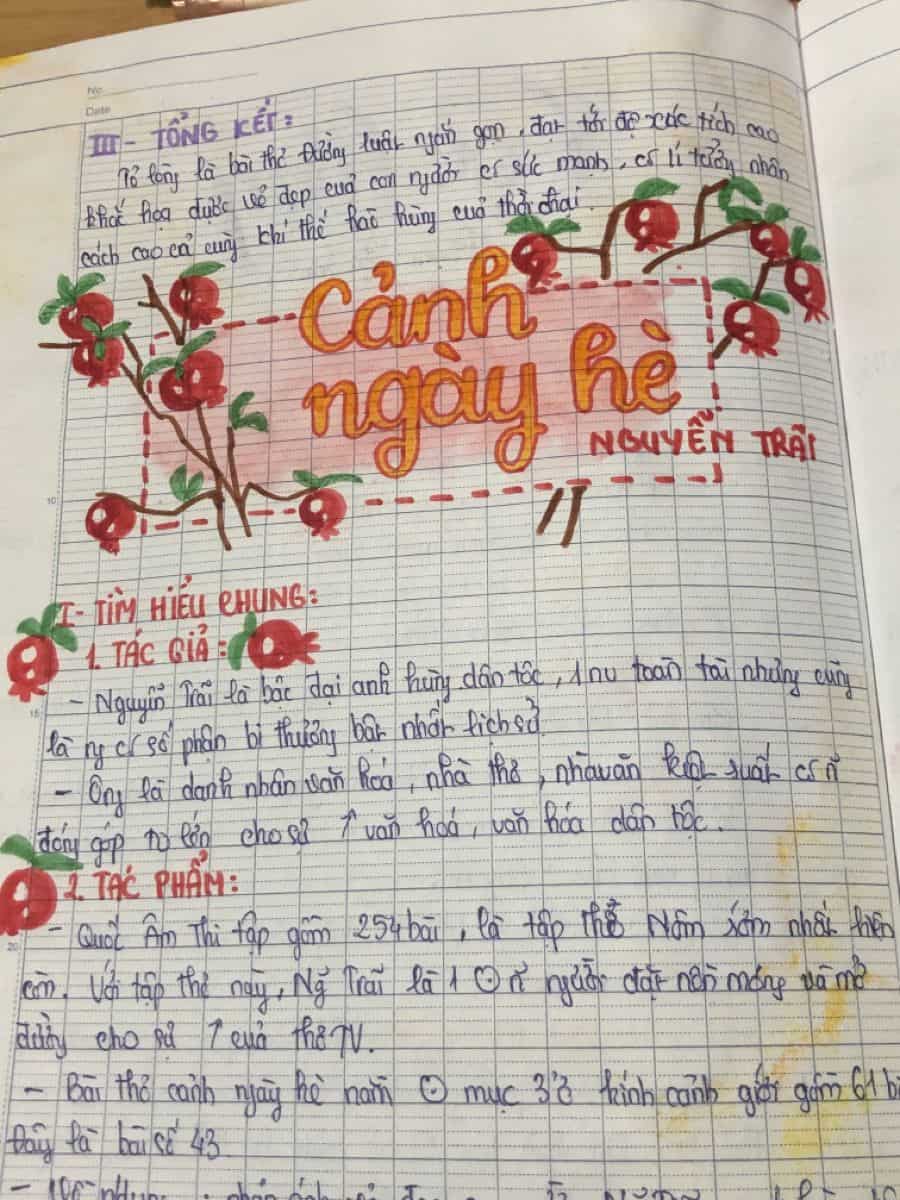 No
Date
III - TỔNG KẾT:
Tỏ lòng là bài thơ Đường luật ngắn gọn, đạt tới độ xúc tích cao
khắc họa được vẻ đẹp của con người cs sức mạnh, cs lí tưởng nhân
cách cao cả cùng khí thế hào hùng của thời đại.
Cảnh
ngày hè
NGUYỄN TRÃI
10
I- TÌM HIỂU CHUNG:
1. TÁC GIẢ:
- Nguyễn Trãi là bậc đại anh hùng dân tộc, 1 nv toàn tài nhưng cũng
15
là ng cs số phận bi thương bậc nhất lịch sử
- Ông là danh nhân văn hoá, nhà thơ, nhà văn kiệt suất cs n
đóng góp to lớn cho sự ↑ văn hoá, văn hóa dân tộc.
2. TÁC PHẨM:
20
- Quốc Âm Thi tập gồm 254 bài, là tập thơ Nôm sớm nhất hiện
còn. Với tập thơ này, Ng Trãi là 1 ⊙ n người đặt nền móng và mở
đường cho sự ↑ của thơ TV.
- Bài thơ cảnh ngày hè nằm ⊙ mục 33 kính cảnh giới gồm 61 b
Đây là bài số 43